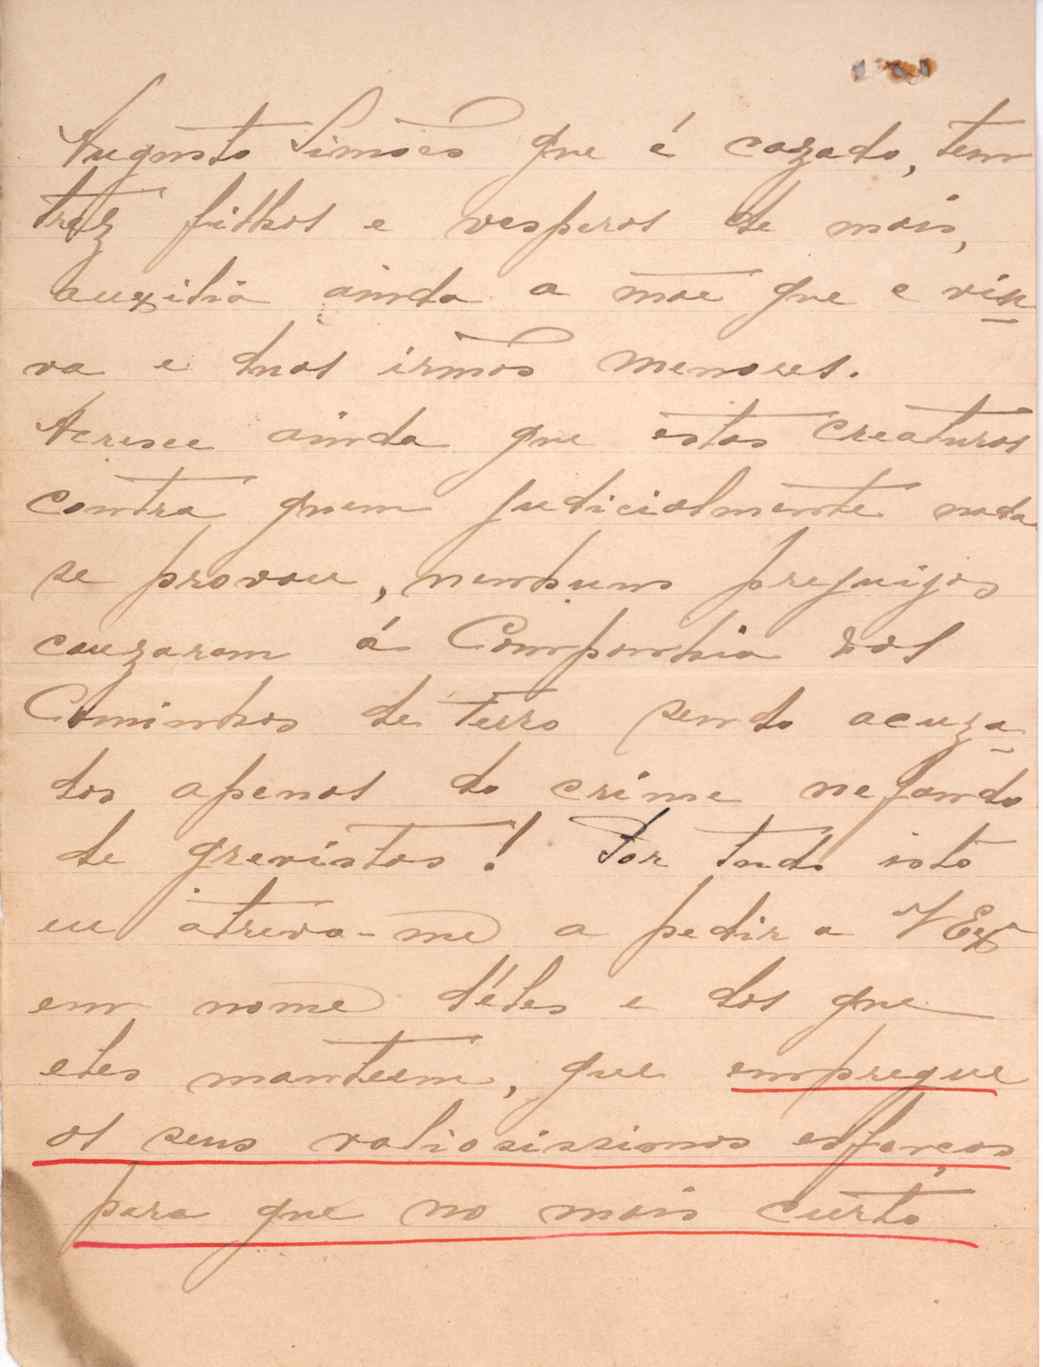 Augusto Simões que é cazado, tem
trez filhos e vesperas de mais,
auxilia ainda a mãe que e viu
va e duas irmãs menores.
Acresce ainda que estas creaturas
contra quem judicialmente nada
se provou, nenhuns prejuizos
cauzaram á Companhia dos
Caminhos de ferro sendo acuza-
dos apenas do crime nefando
de grevistas! Por tudo isto
eu atrevo-me a pedir a VExª
em nome d'éles e dos que
eles manteem, que empregue
os seus valiosissimos esforços
para que no mais curto